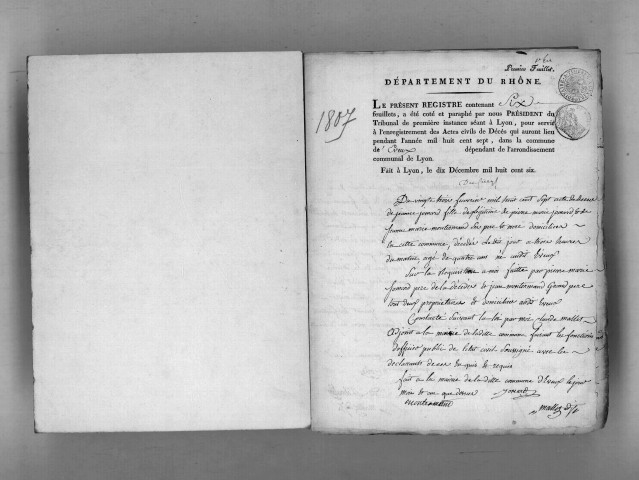 1er
Premier Feuillet.
DÉPARTEMENT DU RHÔNE.
1807
LE PRÉSENT REGISTRE contenant Six
feuillets, a été coté et paraphé par nous PRÉSIDENT du
Tribunal de première instance séant à Lyon, pour servir
à l'enregistrement des Actes civils de Décès qui auront lieu
pendant l'année mil huit cent sept, dans la commune
de dépendant de l'arrondissement
communal de Lyon.
Fait à Lyon, le dix Décembre mil huit cent six.
Du vingt trois fevrier mil huit cent sept acte de deces
de jeanne fille de pierre marie
jeanne marie montermand ses pere & mere domicilies
en cette commune, décédée le dit jour a trois heures
du matin, agé de quatre ans né audit
Sur la requisition a moi faitte par pierre marie
pere de la décédée & jean montermand Grand pere
tout deux proprietaires & domicilies audit
Constaté Suivant la loi par moi mallet
Adjoint a la mairie de laditte commune faisant les fonctions
d'officier public de l'état civil Soussigné avec les
declarants de ce requis
fait a la mairie de la ditte commune d' le jour
mois & an que dessus
montermand
mallet adjt